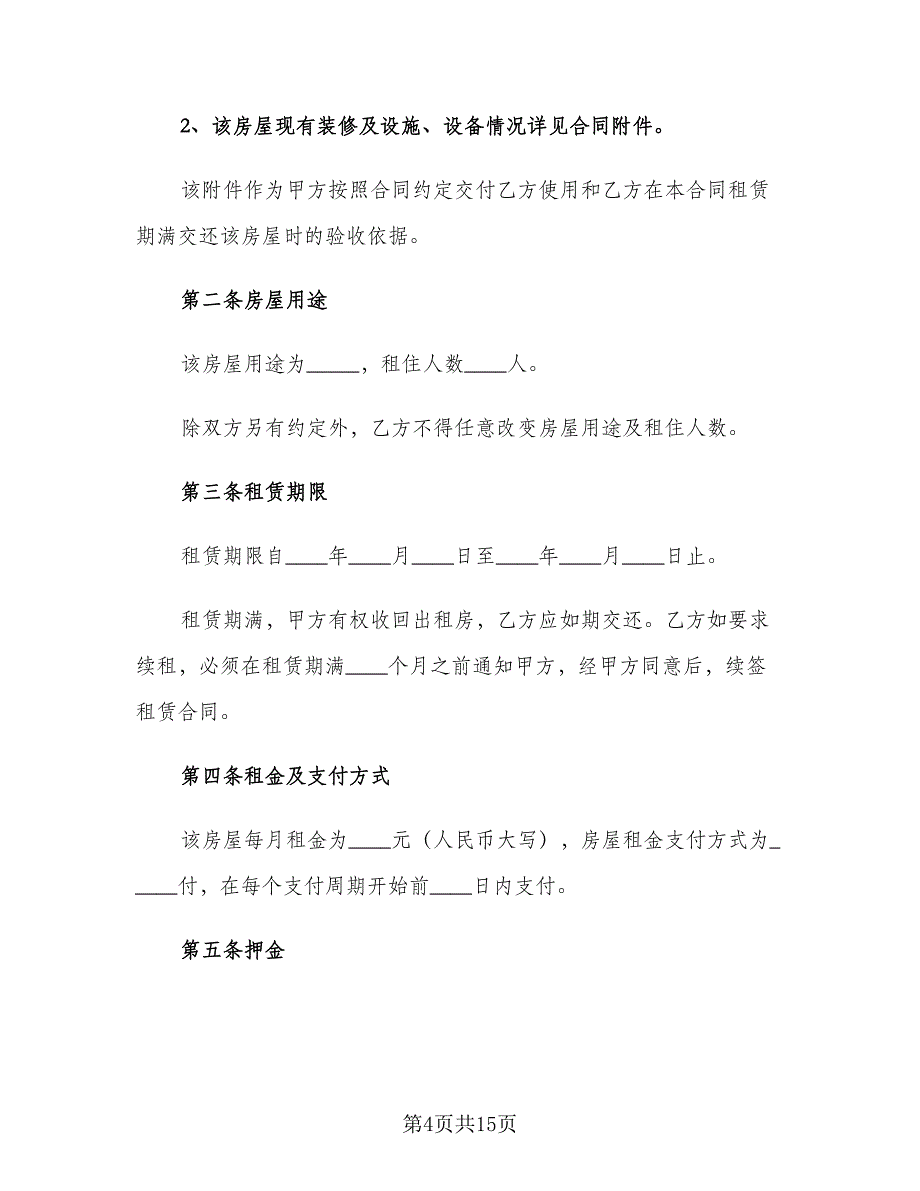 2、该房屋现有装修及设施、设备情况详见合同附件。
该附件作为甲方按照合同约定交付乙方使用和乙方在本合同租赁
期满交还该房屋时的验收依据。
第二条房屋用途
该房屋用途为_____，租住人数____人。
除双方另有约定外，乙方不得任意改变房屋用途及租住人数。
第三条租赁期限
租赁期限自____年____月____日至____年____月____日止。
租赁期满，甲方有权收回出租房，乙方应如期交还。乙方如要求
续租，必须在租赁期满____个月之前通知甲方，经甲方同意后，续签
租赁合同。
第四条租金及支付方式
该房屋每月租金为____元（人民币大写），房屋租金支付方式为_
____付，在每个支付周期开始前____日内支付。
第五条押金
第4页共15页